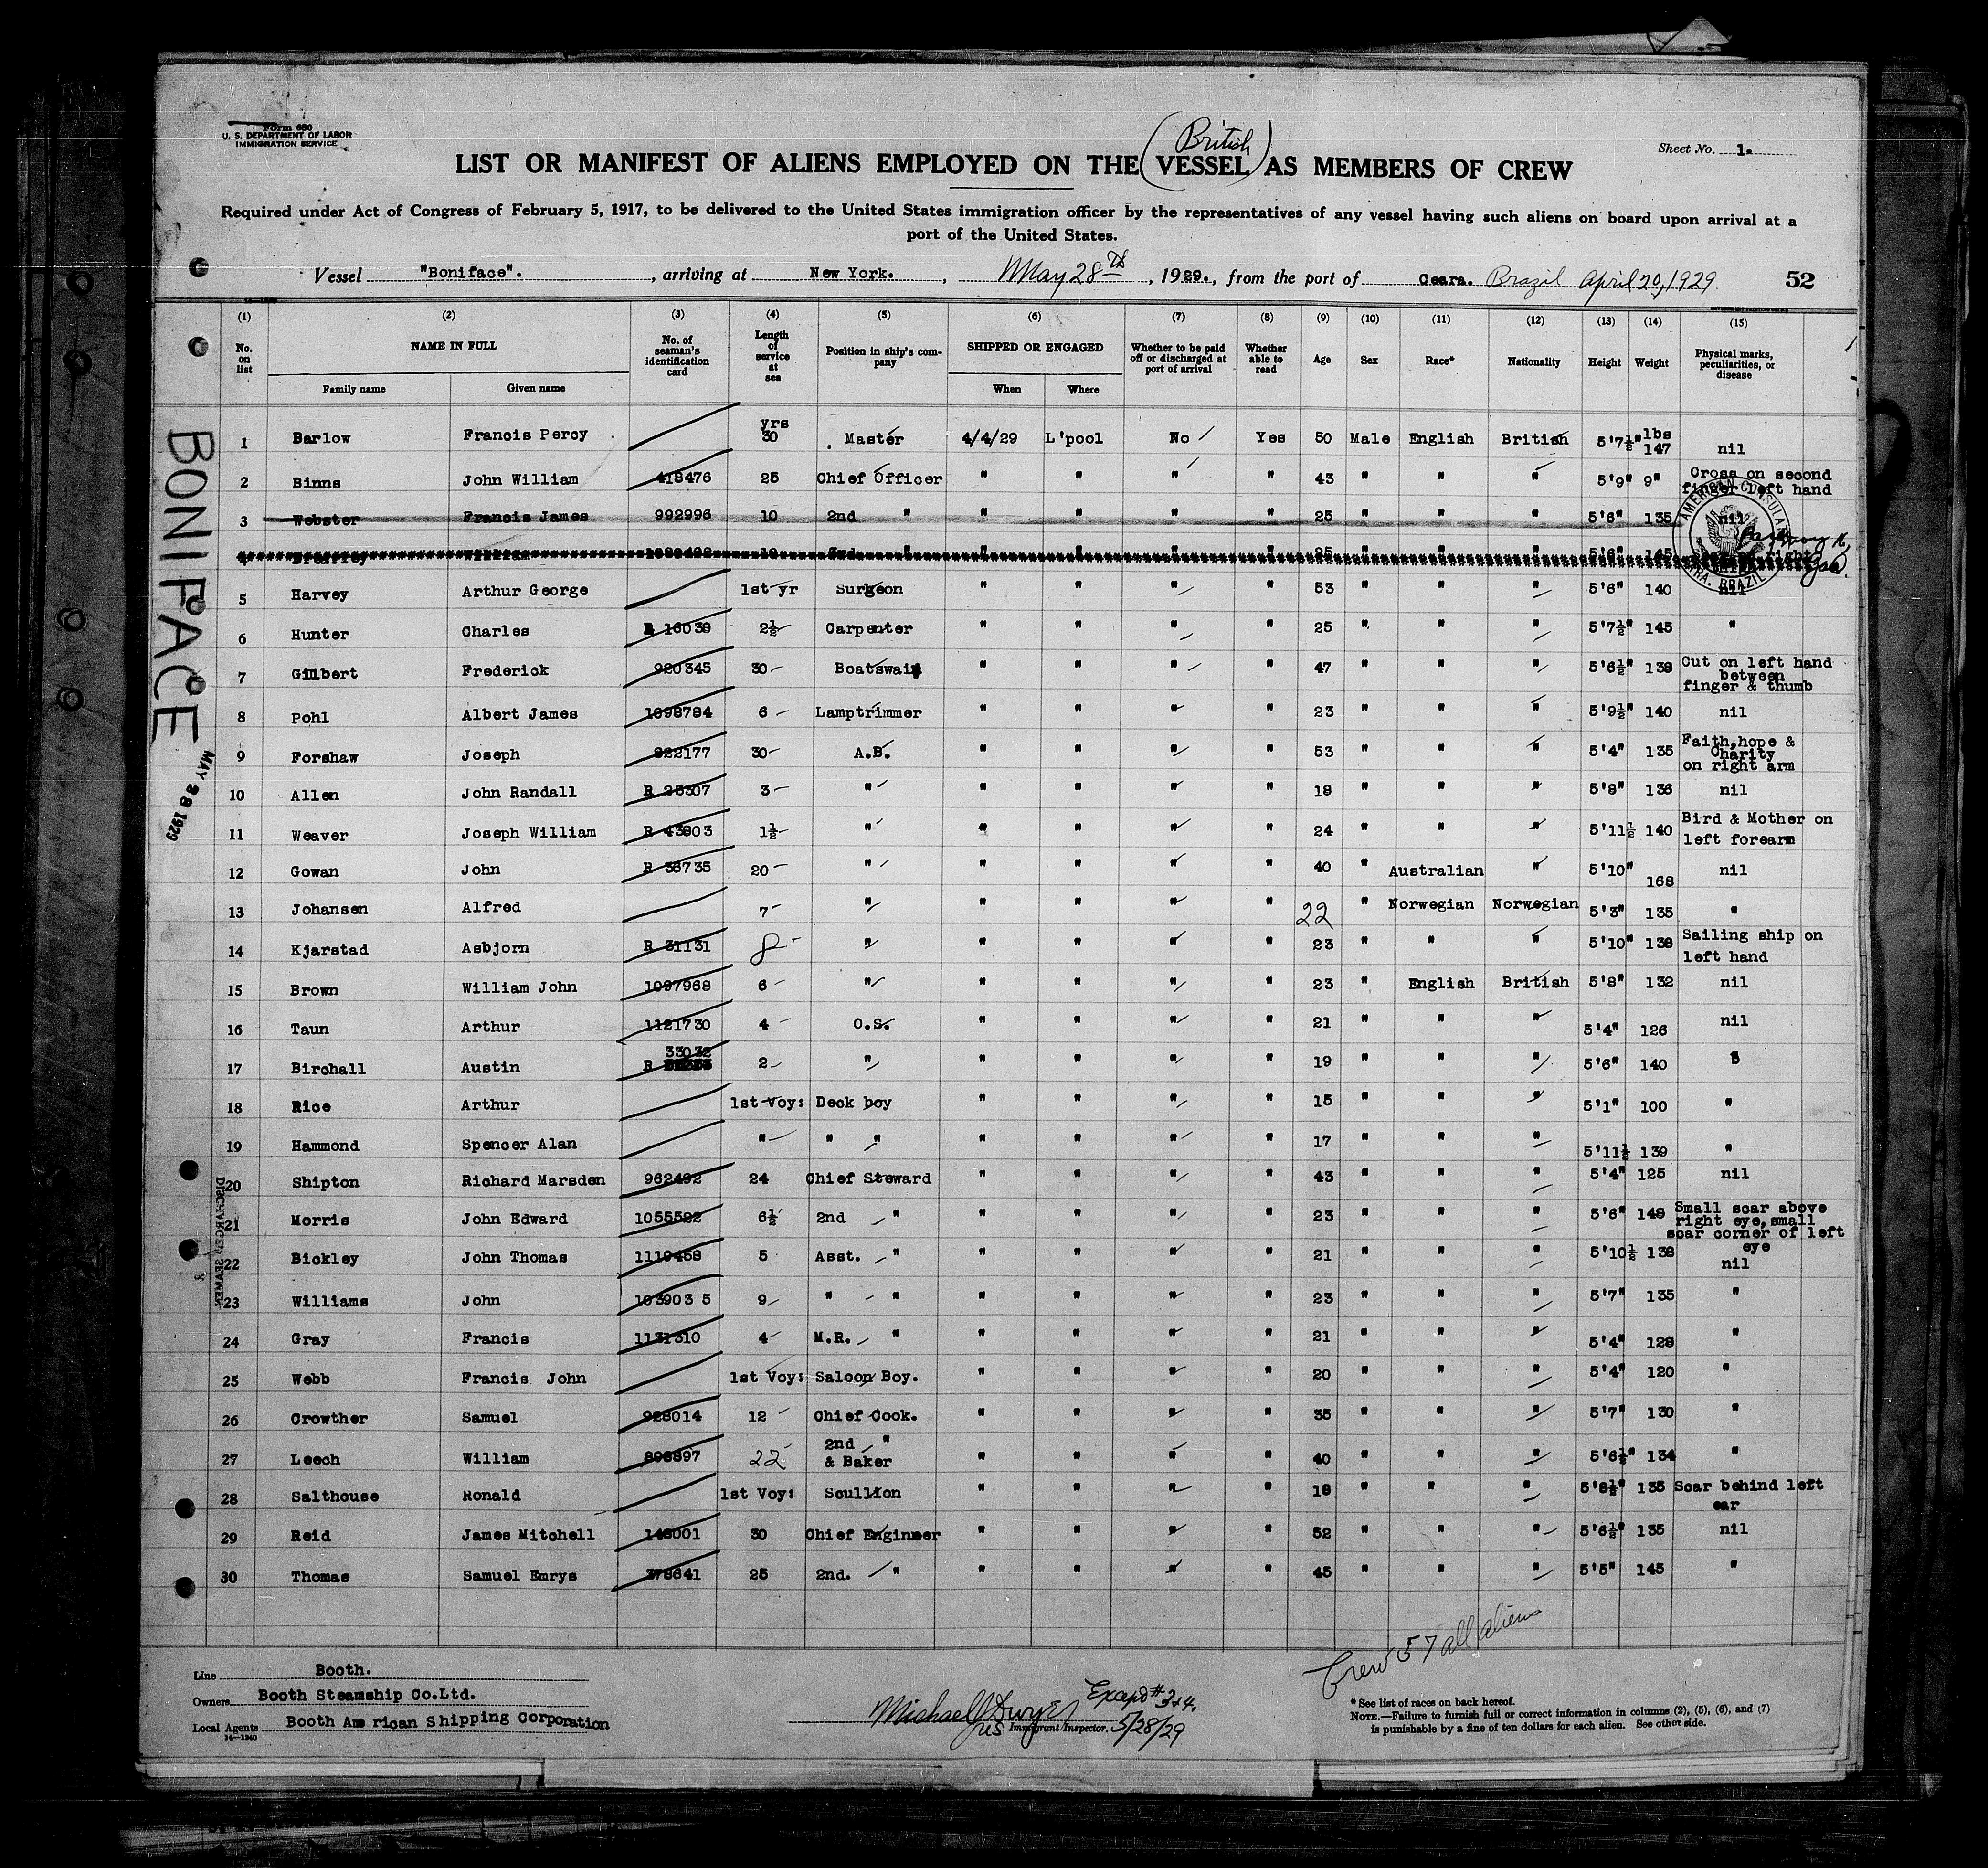 Form 680
U. S. DEPARTMENT OF LABOR
IMMIGRATION SERVICE
Sheet No. 1.
(British)
LIST OR MANIFEST OF ALIENS EMPLOYED ON THE VESSEL AS MEMBERS OF CREW
Required under Act of Congress of February 5, 1917, to be delivered to the United States immigration officer by the representatives of any vessel having such aliens on board upon arrival at a
port of the United States.
Vessel "Boniface". , arriving at New York. , May 28th , 1929., from the port of Ceara. Brazil April 20, 1929
52
(1) (2) (3) (4) (5) (6) (7) (8) (9) (10) (11) (12) (13) (14) (15)
No. on list NAME IN FULL Family name Given name No. of seaman's identification card Length of service at sea Position in ship's company SHIPPED OR ENGAGED When Where Whether to be paid off or discharged at port of arrival Whether able to read Age Sex Race* Nationality Height Weight Physical marks, peculiarities, or disease
1 Barlow Francis Percy yrs 30 Master 4/4/29 L'pool No Yes 50 Male English British 5'7½" lbs 147 nil
2 Binns John William 418476 25 Chief Officer " " " " 43 " " " 5'9" 9" Cross on second finger left hand
3 Webster Francis James 992996 10 2nd " " " " " 25 " " " 5'6" 135 nil
4 William 10 " " " " " 25 " " " 5'6" 145
5 Harvey Arthur George 1st yr Surgeon " " " " 53 " " " 5'6" 140 nil
6 Hunter Charles R 16038 2½ Carpenter " " " " 25 " " " 5'7½" 145 "
7 Gilbert Frederick 920345 30 Boatswain " " " " 47 " " " 5'6½" 138 Cut on left hand between finger & thumb
8 Pohl Albert James 1098784 6 Lamptrimmer " " " " 23 " " " 5'9½" 140 nil
9 Forshaw Joseph 822177 30 A.B. " " " " 53 " " " 5'4" 135 Faith,hope & Charity on right arm
10 Allen John Randall R 25307 3 " " " " " 18 " " " 5'8" 136 nil
11 Weaver Joseph William R 43803 1½ " " " " " 24 " " " 5'11½ 140 Bird & Mother on left forearm
12 Gowan John R 36735 20 " " " " " 40 " Australian " 5'10" 168 nil
13 Johansen Alfred 7 " " " " " 22 " Norwegian Norwegian 5'3" 135 "
14 Kjarstad Asbjorn R 31131 8 " " " " " 23 " " " 5'10" 138 Sailing ship on left hand
15 Brown William John 1097968 6 " " " " " 23 " English British 5'8" 132 nil
16 Taun Arthur 1121730 4 O.S. " " " " 21 " " " 5'4" 126 nil
17 Birchall Austin R 33032 2 " " " " " 19 " " " 5'6" 140 "
18 Rice Arthur 1st Voy: Deck boy " " " " 15 " " " 5'1" 100 "
19 Hammond Spencer Alan " " " " " " " 17 " " " 5'11½ 139 "
20 Shipton Richard Marsden 962492 24 Chief Steward " " " " 43 " " " 5'4" 125 nil
21 Morris John Edward 1055592 6½ 2nd " " " " " 23 " " " 5'6" 148 Small scar above right eye,small scar corner of left eye
22 Bickley John Thomas 1119458 5 Asst. " " " " " 21 " " " 5'10½ 138 nil
23 Williams John 103903 5 9 " " " " " " 23 " " " 5'7" 135 "
24 Gray Francis 1131310 4 M.R. " " " " " 21 " " " 5'4" 128 "
25 Webb Francis John 1st Voy: Saloon Boy. " " " " 20 " " " 5'4" 120 "
26 Crowther Samuel 928014 12 Chief Cook. " " " " 35 " " " 5'7" 130 "
27 Leech William 898897 22 2nd " & Baker " " " " 40 " " " 5'6½" 134 "
28 Salthouse Ronald 1st Voy: Scullion " " " " 18 " " " 5'8½" 135 Scar behind left ear
29 Reid James Mitchell 146001 30 Chief Enginner " " " " 52 " " " 5'6½" 135 nil
30 Thomas Samuel Emrys 378641 25 2nd. " " " " " 45 " " " 5'5" 145 "
BONIFACE
MAY 28 1929
DISCHARGED SEAMEN
AMERICAN CONSULAR
BRAZIL
Crew 57 all aliens
Line Booth.
Owners Booth Steamship Co.Ltd.
Local Agents Booth American Shipping Corporation
14—1240
Michael J Dwyer Exapd # 3+4.
US Immigrant Inspector. 5/28/29
* See list of races on back hereof.
NOTE.—Failure to furnish full or correct information in columns (2), (5), (6), and (7)
is punishable by a fine of ten dollars for each alien. See other side.